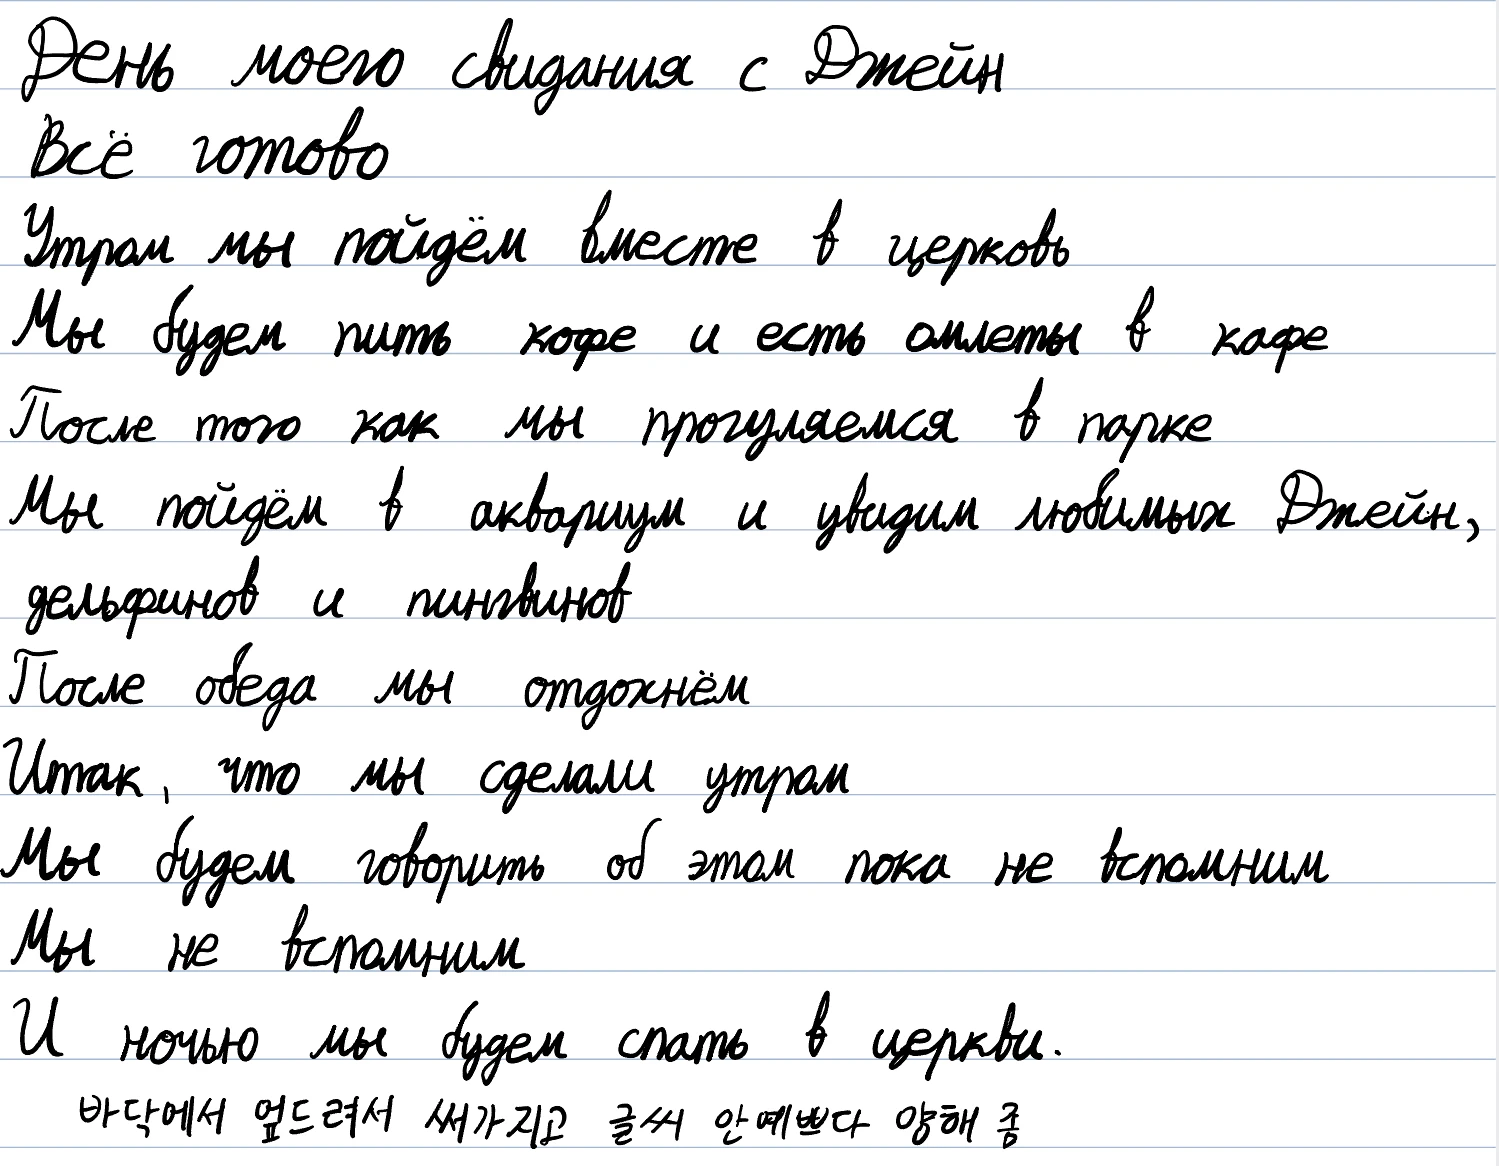 День моего свидания с Джейн
Всё готово
Утром мы пойдём вместе в церковь
Мы будем пить кофе и есть омлеты в кафе
После того как мы прогуляемся в парке
Мы пойдём в аквариум и увидим любимых Джейн,
дельфинов и пингвинов
После обеда мы отдохнём
Итак, что мы сделали утром
Мы будем говорить об этом пока не вспомним
Мы не вспомним
И ночью мы будем спать в церкви.
바닥에서 엎드려서 써가지고 글씨 안예쁘다 양해 좀